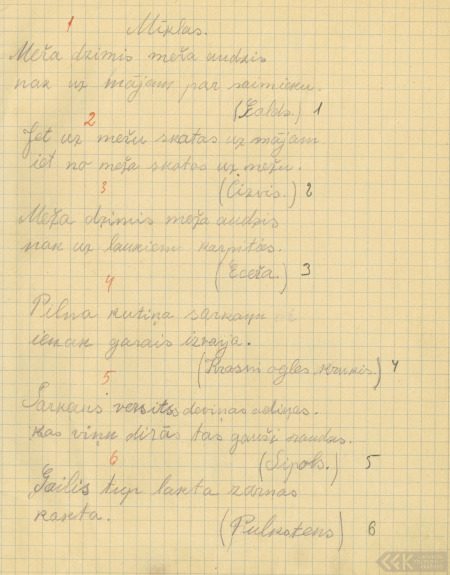 1
Mīklas.
Meža dzimis meža audzis
nāk uz mājām par saimnieku.
(Galds.) 1
2
Iet uz mežu skatās uz mājam
iet no meža skatās uz mežu.
(Cirvis.) 2
3
Meža dzimis meža audzis
nāk uz laukiem karpīties.
(Eceža.) 3
4
Pilna kutiņa sarkanu
ienāk garais izvaja.
(Krasni ogles krukis.) 4
5
Sarkans versits deviņas adiņas.
kas viņu dirās tas gauži raudās.
(Sīpols.) 5
6
Gailis tup lakta zarnas
kakta.
(Pulkstens) 6